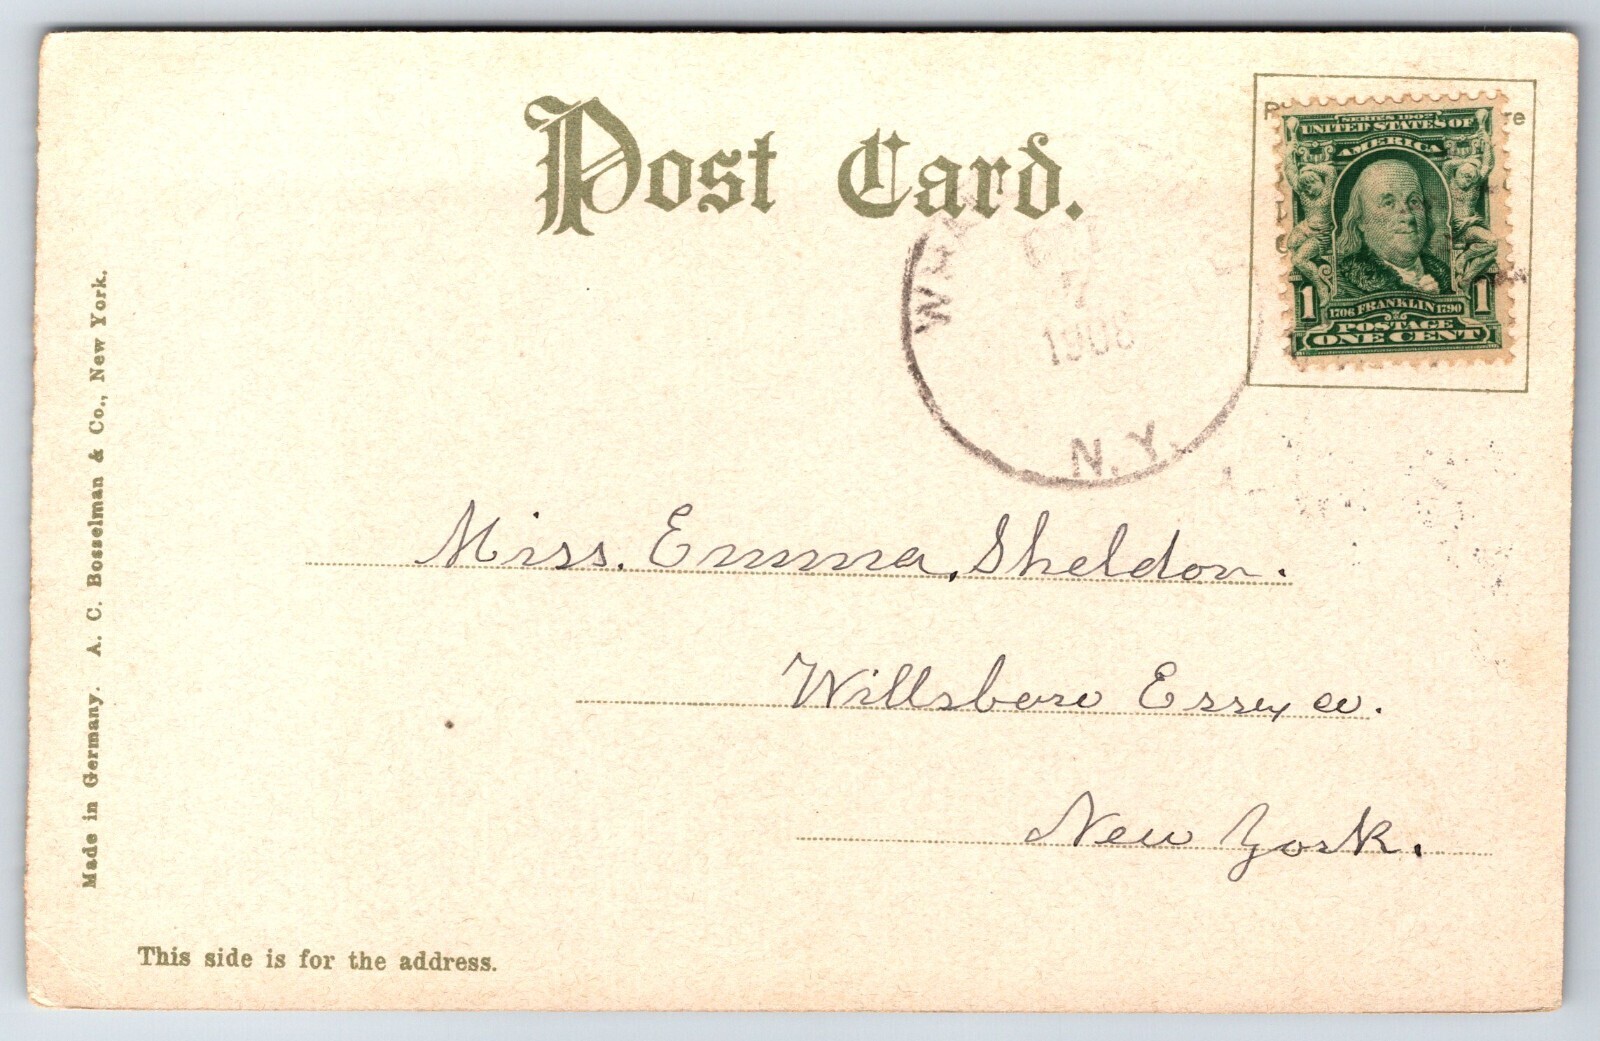 Post Card.
SERIES 1902
UNITED STATES OF
AMERICA
1 1706 FRANKLIN 1790 1
POSTAGE
ONE CENT
7
N.Y.
Miss. Emma. Sheldon.
Willsboro Essex co.
New York.
Made in Germany. A. C. Bosselman & Co., New York.
This side is for the address.